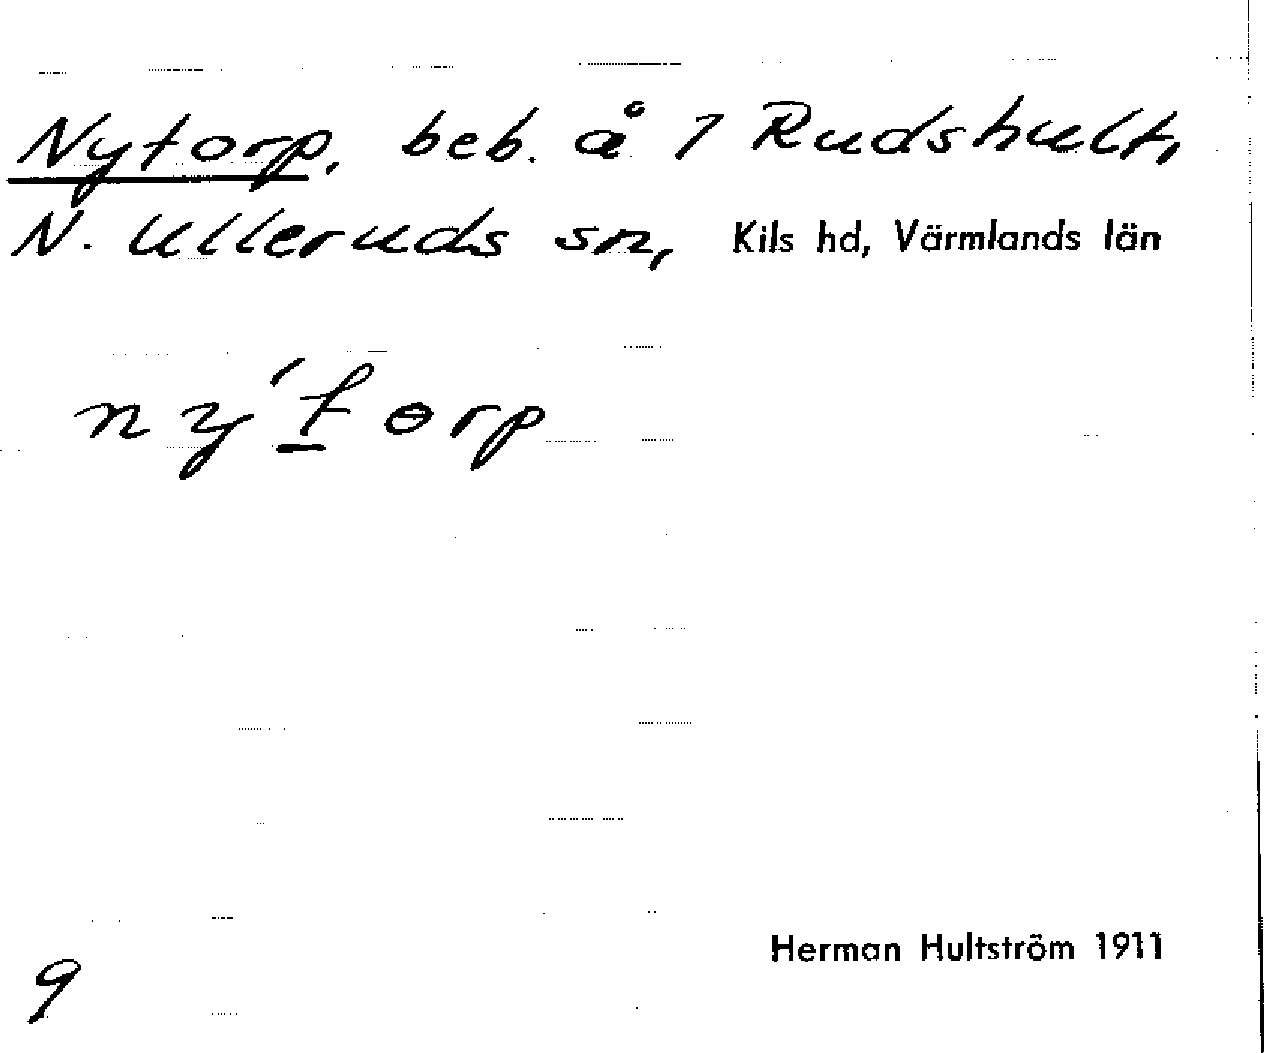 Nytorp, beb. å 1 Rudshult,
N. Ulleruds sn, Kils hd, Värmlands län
ny´torp
9
Herman Hultström 1911